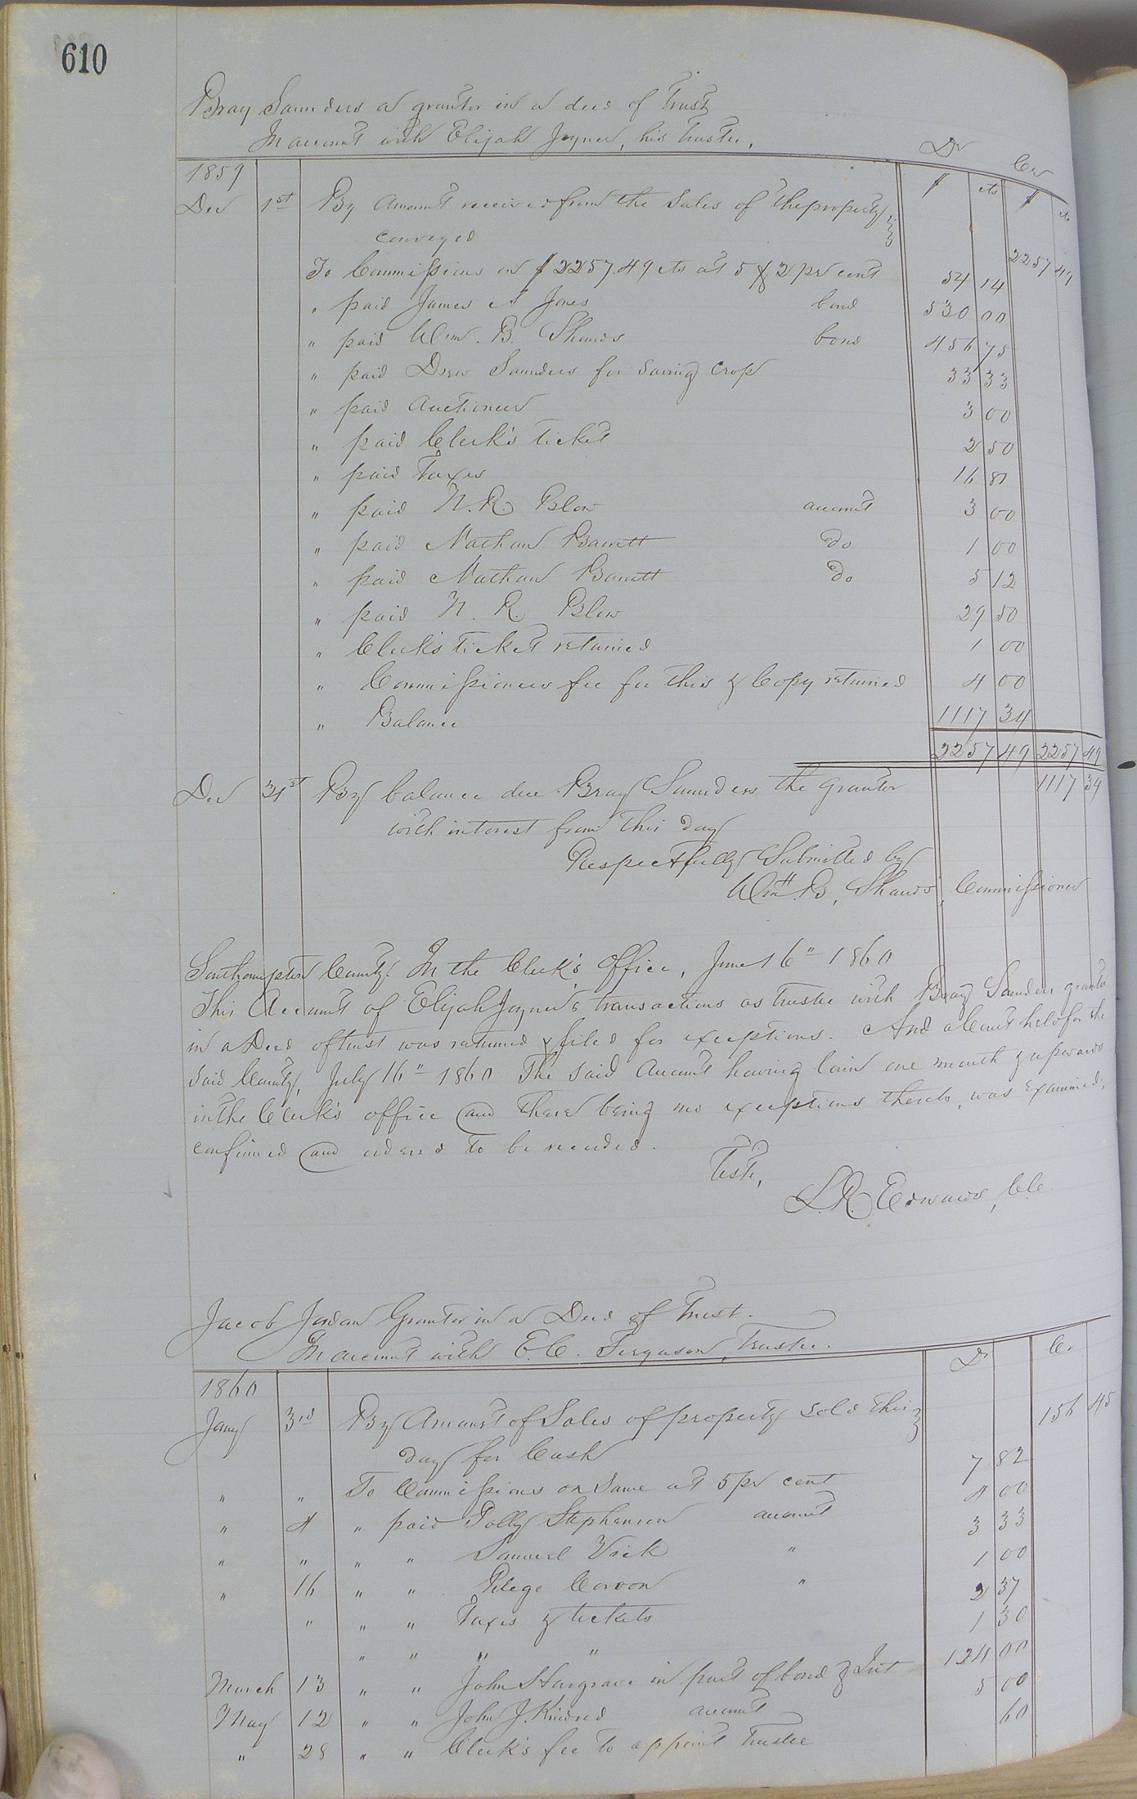 610
Bray Saunders a grantor in a deed of Trust
In account with Elijah Joyner, his trustee,
Dr Cr
1859 $ cts $ cts
Dec 1st By Amount received from the Sales of the property
conveyed 2257 49
To Commissions on $2257.49 cts at 5 & 2 pr cent 54 14
" paid James A Jones bond 530 00
" paid Wm. B. Shands bond 456 75
" paid Drew Saunders for saving crop 33 33
" paid Auctioneer 3 00
" paid Clerk's ticket 2 50
" paid Taxes 16 81
" paid N. R. Blow account 3 00
" paid Nathan Barrett do 1 00
" paid Nathan Barrett do 5 12
" paid N. R Blow 29 50
" Clerk's ticket returned 1 00
" Commissioners fee for this & Copy returned 4 00
" Balance 1117 34
2257 49 2257 49
Dec 31st By balance due Bray Saunders the grantor 1117 34
with interest from this day
Respectfully Submitted by
Wm. B. Shands, Commissioner
Southampton County. In the Clerk's Office, June 16" 1860
This Account of Elijah Joyner's transactions as trustee with Bray Saunders grantor
in a Deed of trust was returned & filed for exceptions. And a Court held for the
said County, July 16" 1860 The said Account having lain one month & upwards
in the Clerk's office and there being no exceptions thereto, was Examined,
confirmed and ordered to be recorded.
Teste,
L. R. Edwards, C.C.
Jacob Jordan Grantor in a Deed of Trust.
In account with E. C. Ferguson, Trustee.
Dr Cr
1860
Jany 3rd By Amount of Sales of property sold this 156 45
day for Cash
" " To Commissions on Same at 5 pr cent 7 82
" 4 " paid Polly Stephenson account 4 00
" " " " Samuel Vick " 3 33
" 16 " " Ridge " 1 00
" " " Taxes & tickets 2 37
" " " " 1 30
March 13 " " John Hargrave in part of bond & Int 124 00
May 12 " " John J. Kindred account 5 00
" 28 " " Clerk's fee to appoint Trustee 60